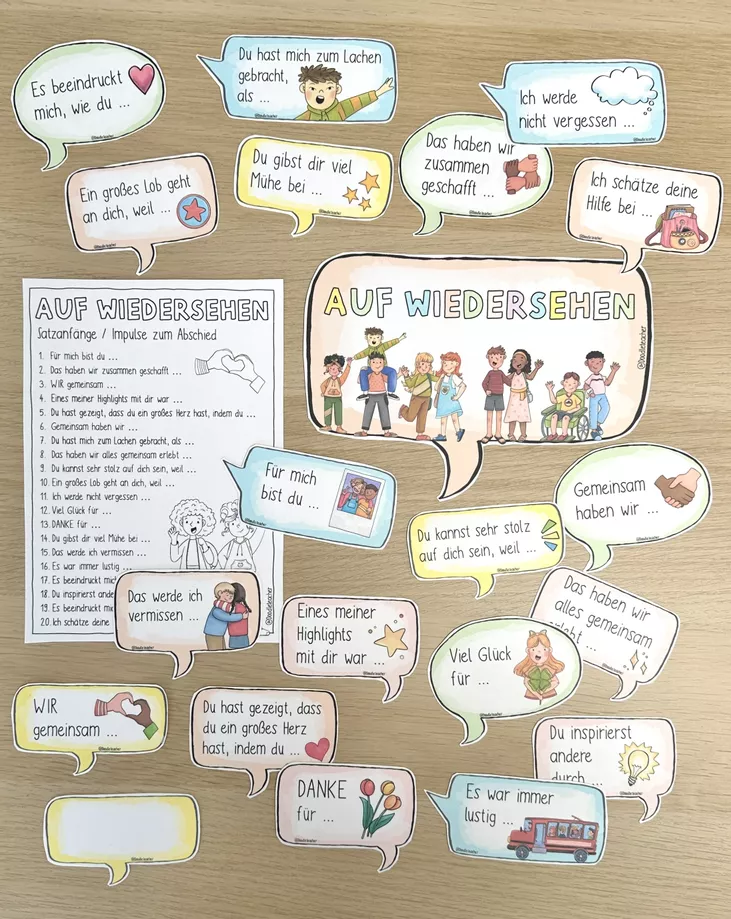 Es beeindruckt
mich, wie du ...
Du hast mich zum Lachen
gebracht,
als ...
Ich werde
nicht vergessen ...
Ein großes Lob geht
an dich, weil ...
Du gibst dir viel
Mühe bei ...
Das haben wir
zusammen
geschafft ...
Ich schätze deine
Hilfe bei ...
AUF WIEDERSEHEN
Satzanfänge / Impulse zum Abschied
1. Für mich bist du ...
2. Das haben wir zusammen geschafft ...
3. WIR gemeinsam ...
4. Eines meiner Highlights mit dir war ...
5. Du hast gezeigt, dass du ein großes Herz hast, indem du ...
6. Gemeinsam haben wir ...
7. Du hast mich zum Lachen gebracht, als ...
8. Das haben wir alles gemeinsam erlebt ...
9. Du kannst sehr stolz auf dich sein, weil ...
10. Ein großes Lob geht an dich, weil ...
11. Ich werde nicht vergessen ...
12. Viel Glück für ...
13. DANKE für ...
14. Du gibst dir viel Mühe bei ...
15. Das werde ich vermissen ...
16. Es war immer lustig ...
17. Es beeindruckt mich
18. Du inspirierst ande
19. Es beeindruckt
20. Ich schätze deine
@doodleteacher
AUF WIEDERSEHEN
@doodleteacher
Für mich
bist du ...
Gemeinsam
haben wir ...
Du kannst sehr stolz
auf dich sein, weil ...
Das werde ich
vermissen ...
Eines meiner
Highlights
mit dir war ...
Das haben wir
alles gemeinsam
erlebt ...
Viel Glück
für ...
WIR
gemeinsam ...
Du hast gezeigt, dass
du ein großes Herz
hast, indem du ...
Du inspirierst
andere
durch ...
DANKE
für ...
Es war immer
lustig ...